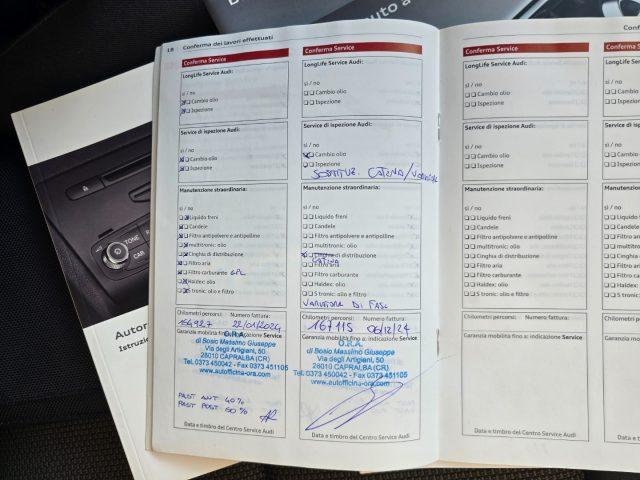 uto a
18 Conferma dei lavori effettuati
Conferma Service
LongLife Service Audi:
sì / no
Cambio olio
Ispezione
Service di ispezione Audi:
sì / no
Cambio olio
Ispezione
Manutenzione straordinaria:
sì / no
Liquido freni
Candele
Filtro antipolvere e antipolline
multitronic: olio
Cinghia di distribuzione
Filtro aria
Filtro carburante GPL
Haldex: olio
S tronic: olio e filtro
Chilometri percorsi: Numero fattura:
154927 22/01/2024
Garanzia mobilità fino a: indicazione Service
O.R.A.
di Bosio Massimo Giuseppe
Via degli Artigiani, 50
26010 CAPRALBA (CR)
Tel. 0373 450042 - Fax 0373 451105
www.autofficina-ora.com
PAST ANT 40%
PAST POST 60%
Data e timbro del Centro Service Audi
Conferma Service
LongLife Service Audi:
sì / no
Cambio olio
Ispezione
Service di ispezione Audi:
sì / no
Cambio olio
Ispezione
SOSTITUZ. CATENA/
Manutenzione straordinaria:
sì / no
Liquido freni
Candele
Filtro antipolvere e antipolline
multitronic: olio
Cinghia di distribuzione
CATENA
Filtro aria
Filtro carburante
Haldex: olio
S tronic: olio e filtro
VARIATORE DI FASE
Chilometri percorsi: Numero fattura:
167115 06/12/24
Garanzia mobilità fino a: indicazione Service
O.R.A.
di Bosio Massimo Giuseppe
Via degli Artigiani, 50
26010 CAPRALBA (CR)
Tel. 0373 450042 - Fax 0373 451105
www.autofficina-ora.com
Data e timbro del Centro Service Audi
Conferma Service
LongLife Service Audi:
sì / no
Cambio olio
Ispezione
Service di ispezione Audi:
sì / no
Cambio olio
Ispezione
Manutenzione straordinaria:
sì / no
Liquido freni
Candele
Filtro antipolvere e antipolline
multitronic: olio
Cinghia di distribuzione
Filtro aria
Filtro carburante
Haldex: olio
S tronic: olio e filtro
Chilometri percorsi: Numero fattura:
Garanzia mobilità fino a: indicazione Service
Data e timbro del Centro Service Audi
TONE
CAR
Autor
Istruzio